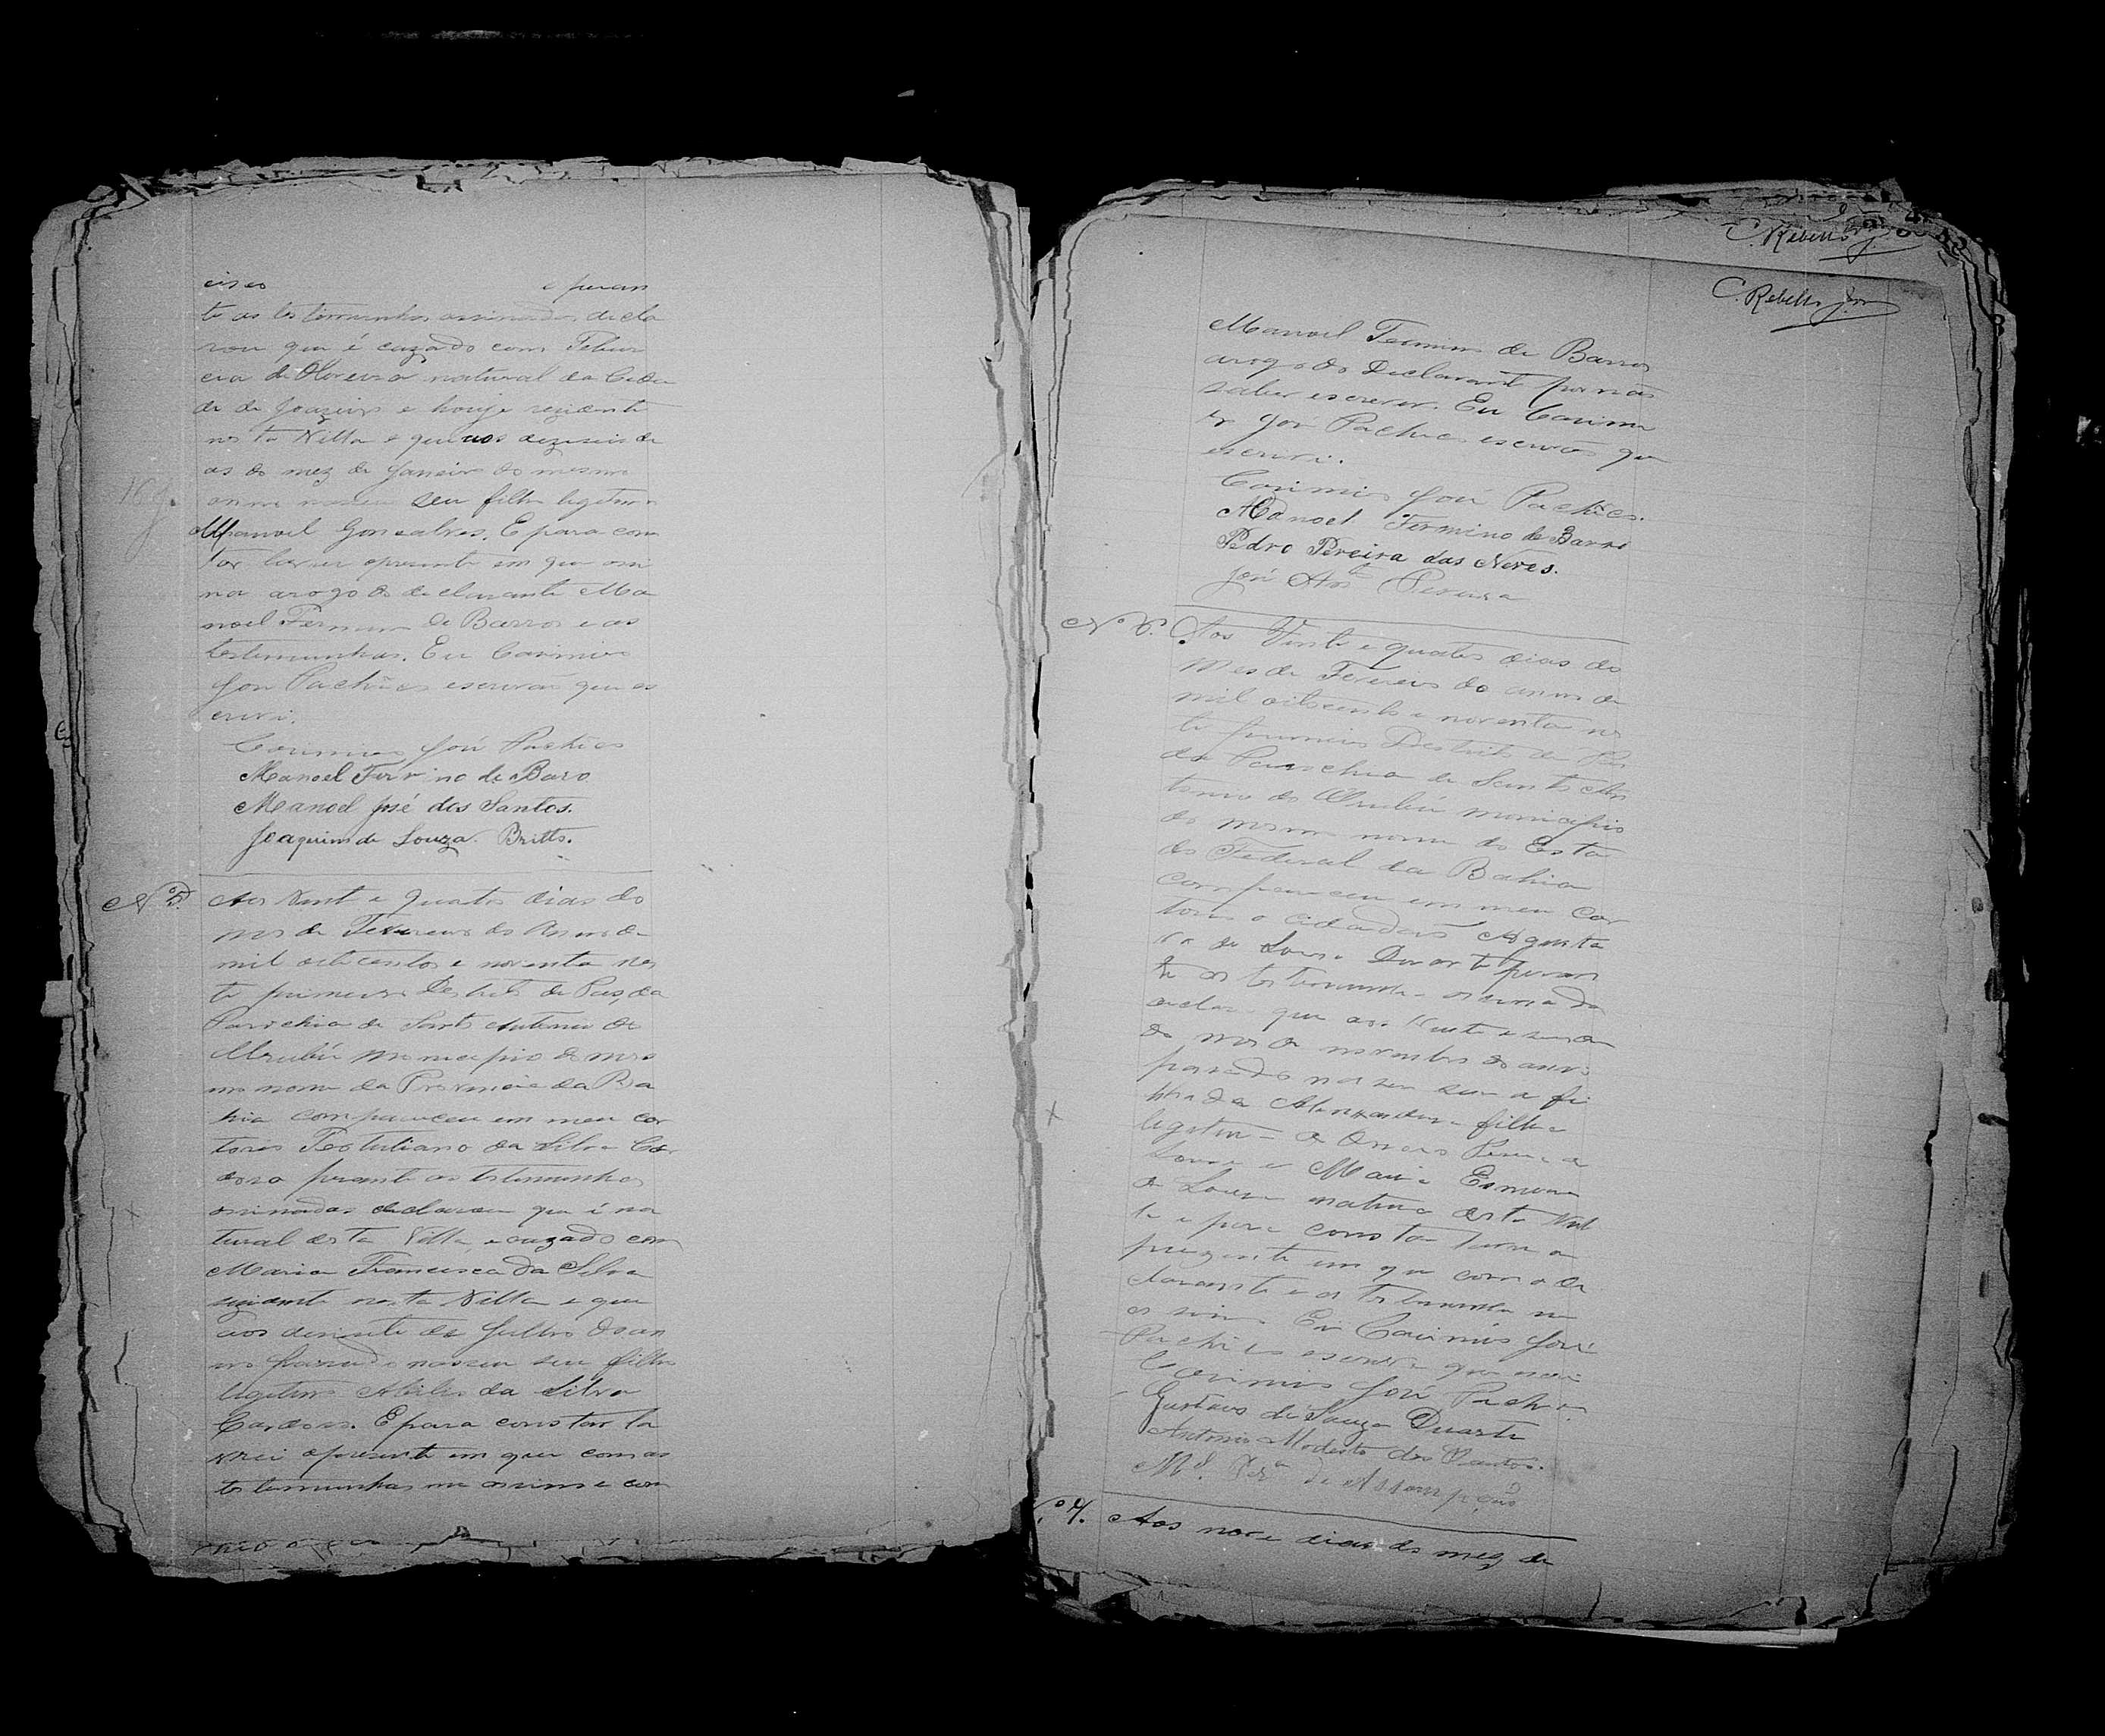 ciso e peran
te as testemunhas assinadas decla
rou que é cazado com Tibur
cia de Oliveira natural da Cida
de de Joazeiro e houje rezidente
nesta Villa e que aos dezeseis di
as do mez de Janeiro do mesmo
anno nasceu seu filho legitimo
16 J.
Manoel Gonsalves. E para cons
tar lavrei apresente em que assi
na arogo do declarante Ma
noel Fermino de Barros e as
testemunhas. Eu Casimiro
José Pachêco escrivão que es
crevi.
Casimiro José Pachêco
Manoel Fermino de Baro
Manoel José dos Santos.
Joaquim de Souza Britto.
Nº 5. Aos Vint e quatro dias do
mes de Fevereiro do Anno de
mil oitocentos e noventa nes
te primeiro Destrito de Pas, da
Parochia de Santo Antonio do
Urubú municipio do mes
mo nome da Provincia da Ba
hia compareceu em meu car
torio Tertuliano da Silva Car
dozo perante as testemunhas
assinadas declarou que é na
tural desta Villa, e cazado com
Maria Francisca da Silva
rezidente nesta Villa e que
aos desisete de Julho do an
no passado nasceu seu filho
legitimo da Silva
Cardoso. E para constar la
vrei apresente em que com as
testemunhas me assino e com
C. Rebello Jor
C. Rebello Jor
Manoel Fermino de Barros
arogo do Declarante por não
saber escrever. Eu Casimi
ro José Pachêco escrivão que
escrevi.
Casimiro José Pachêco.
Manoel Fermino de Barro
Pedro Pereira das Neves.
José Anto Pereira
Nº 6. Aos Vinte e quatro dias do
mes de Fevereiro do anno de
mil oitocento e noventa nes
te primeiro Destrito de Pas
da Parochia de Santo An
tonio do Urubú municipio
do mesmo nome do Esta
do Federal da Bahia
compareceu em meu Car
torio o cidadão
de Souza Duarte peran
te as testemunhas assinada
declarou que aos Vinte e
do mes de novembro do anno
passado nasceu sua a fi
lhada filha
legitima de
Souza e Maria
de Souza natural desta Vil
la e para constar lavrei a
prezente em que com o de
clarante e as testemunhas me
assino Eu Casimiro José
Pachêco escrivão que escrevi
Casimiro José Pachêco
Gustavo de Souza Duarte
Antonio Modesto dos Santos.
Ml. Perª de Assompção
Nº 7. Aos nove dias do mez de